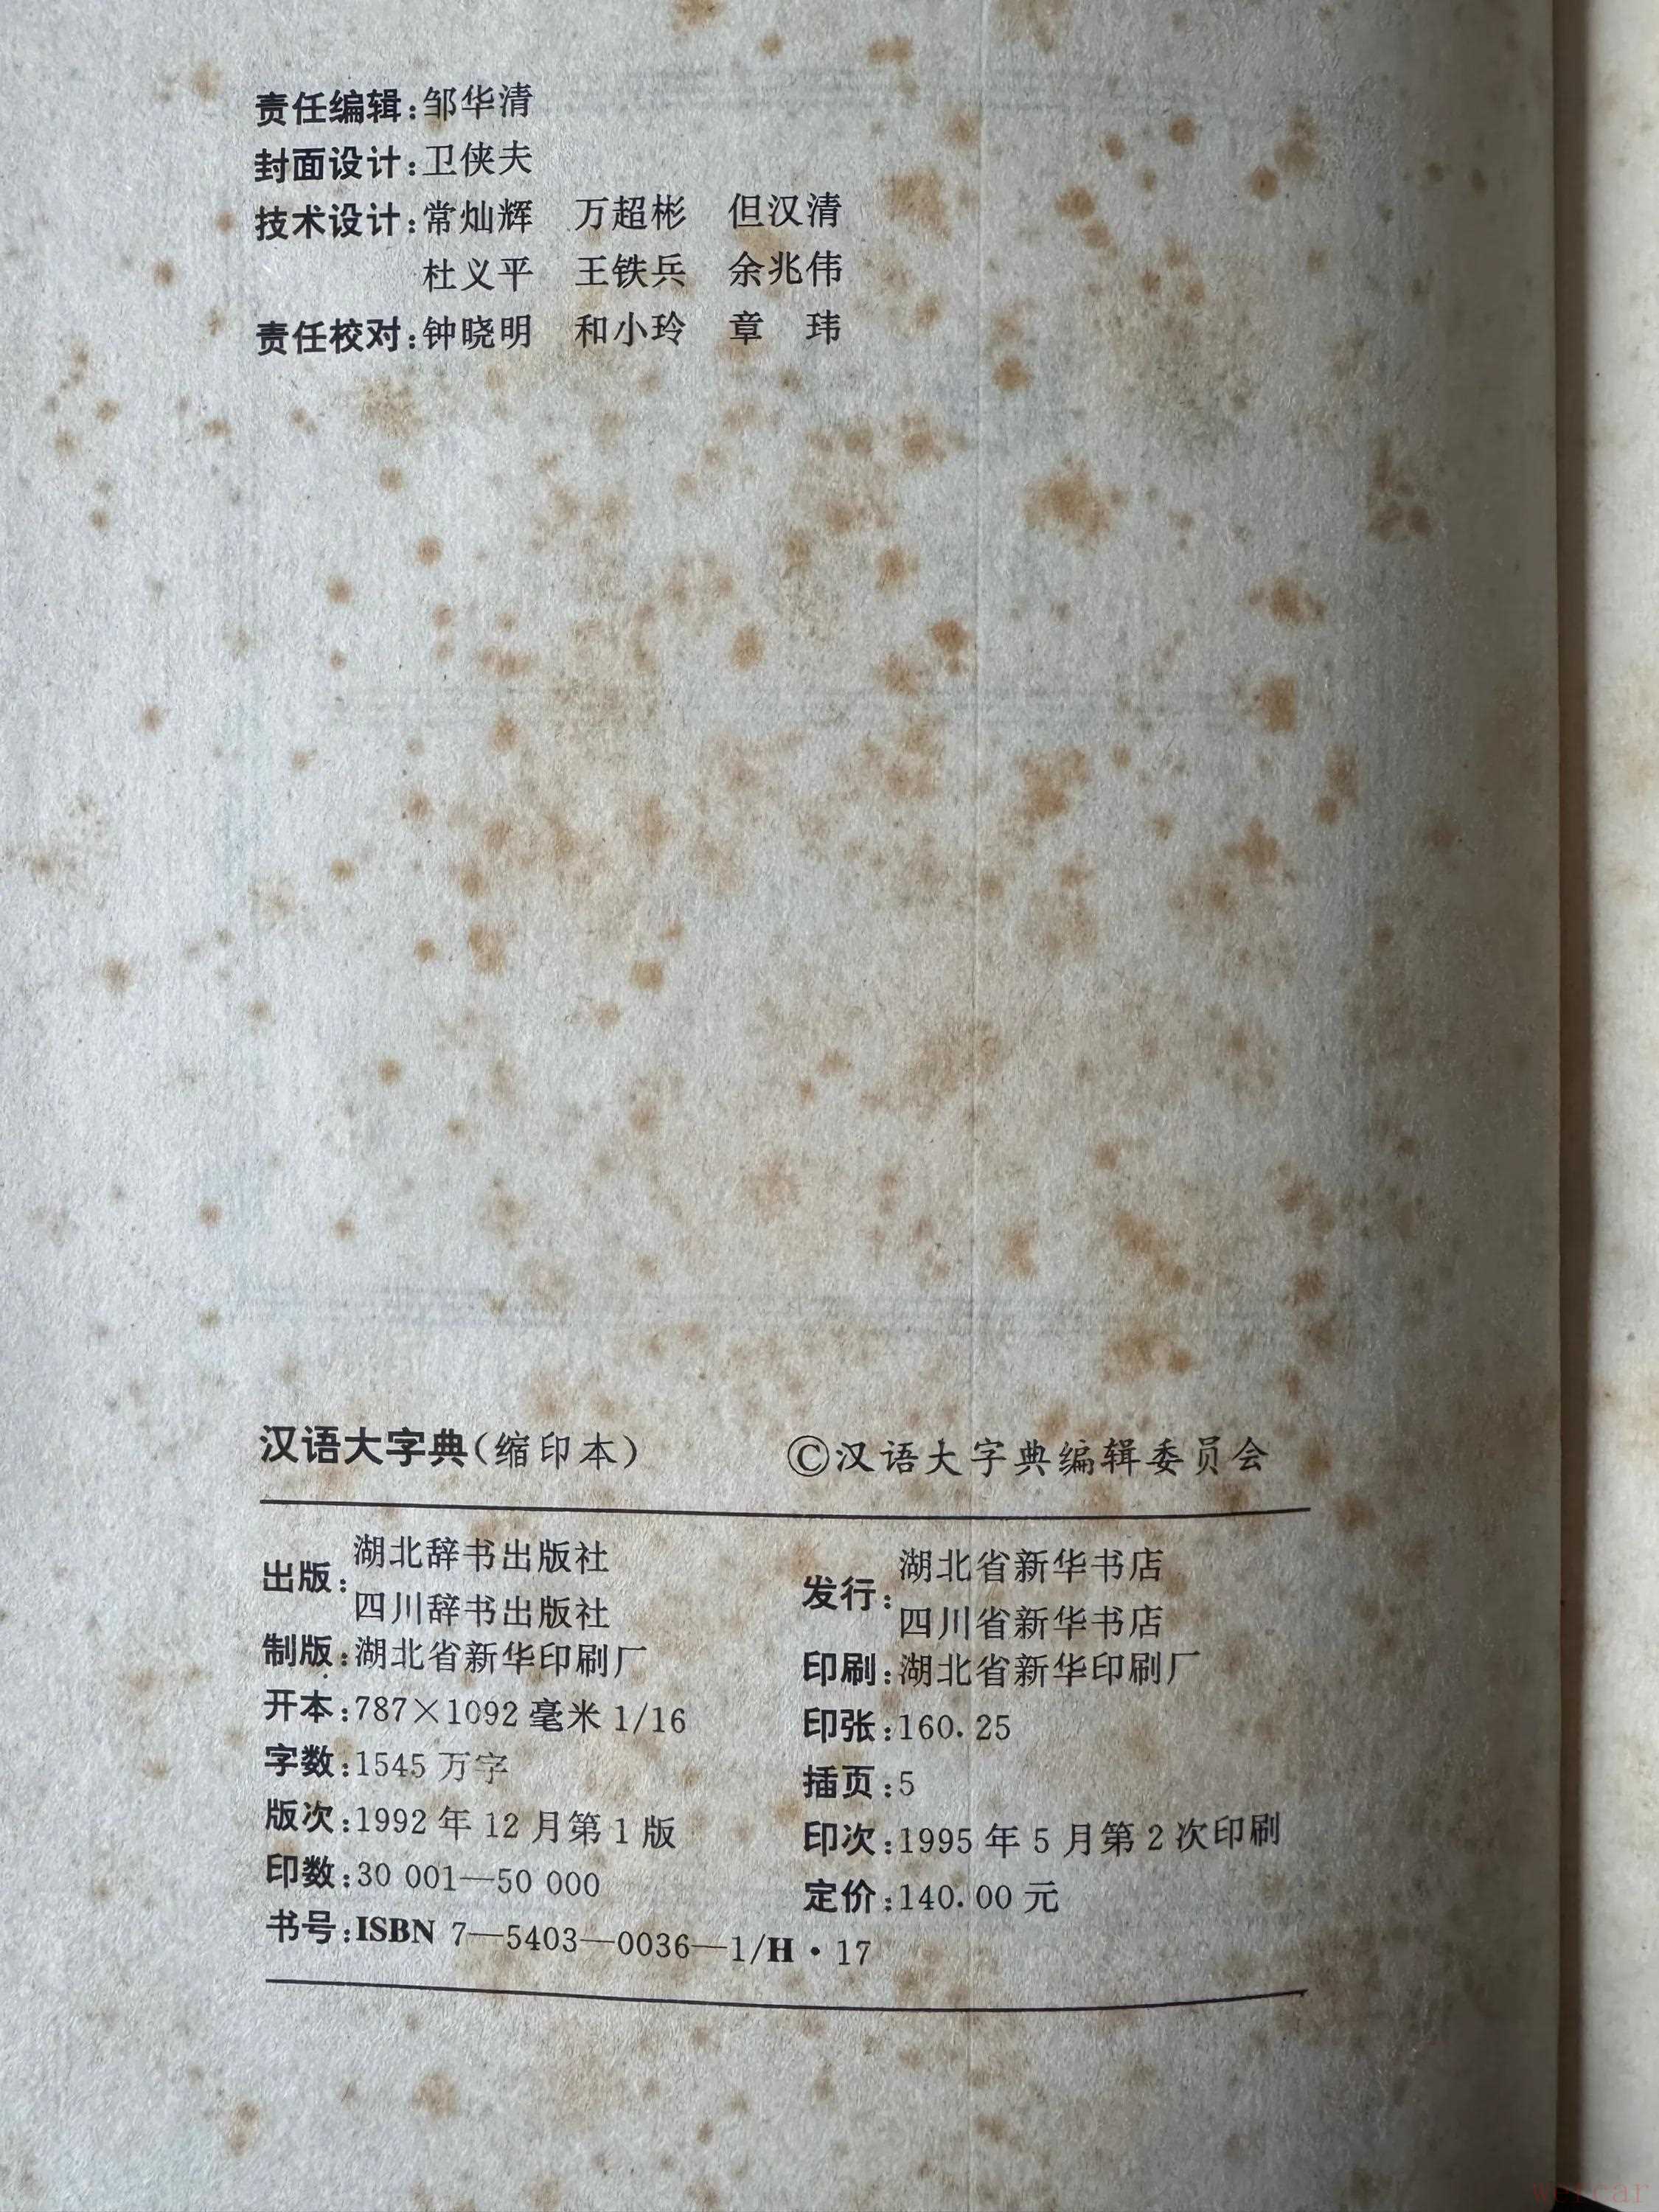 责任编辑:邹华清
封面设计:卫侠夫
技术设计:常灿辉 万超彬 但汉清
杜义平 王铁兵 余兆伟
责任校对:钟晓明 和小玲 章 玮
汉语大字典(缩印本) ©汉语大字典编辑委员会
出版:湖北辞书出版社
四川辞书出版社
发行:湖北省新华书店
四川省新华书店
制版:湖北省新华印刷厂 印刷:湖北省新华印刷厂
开本:787×1092毫米 1/16 印张:160.25
字数:1545万字 插页:5
版次:1992年12月第1版 印次:1995年5月第2次印刷
印数:30 001—50 000 定价:140.00元
书号:ISBN 7—5403—0036—1/H·17
wercar